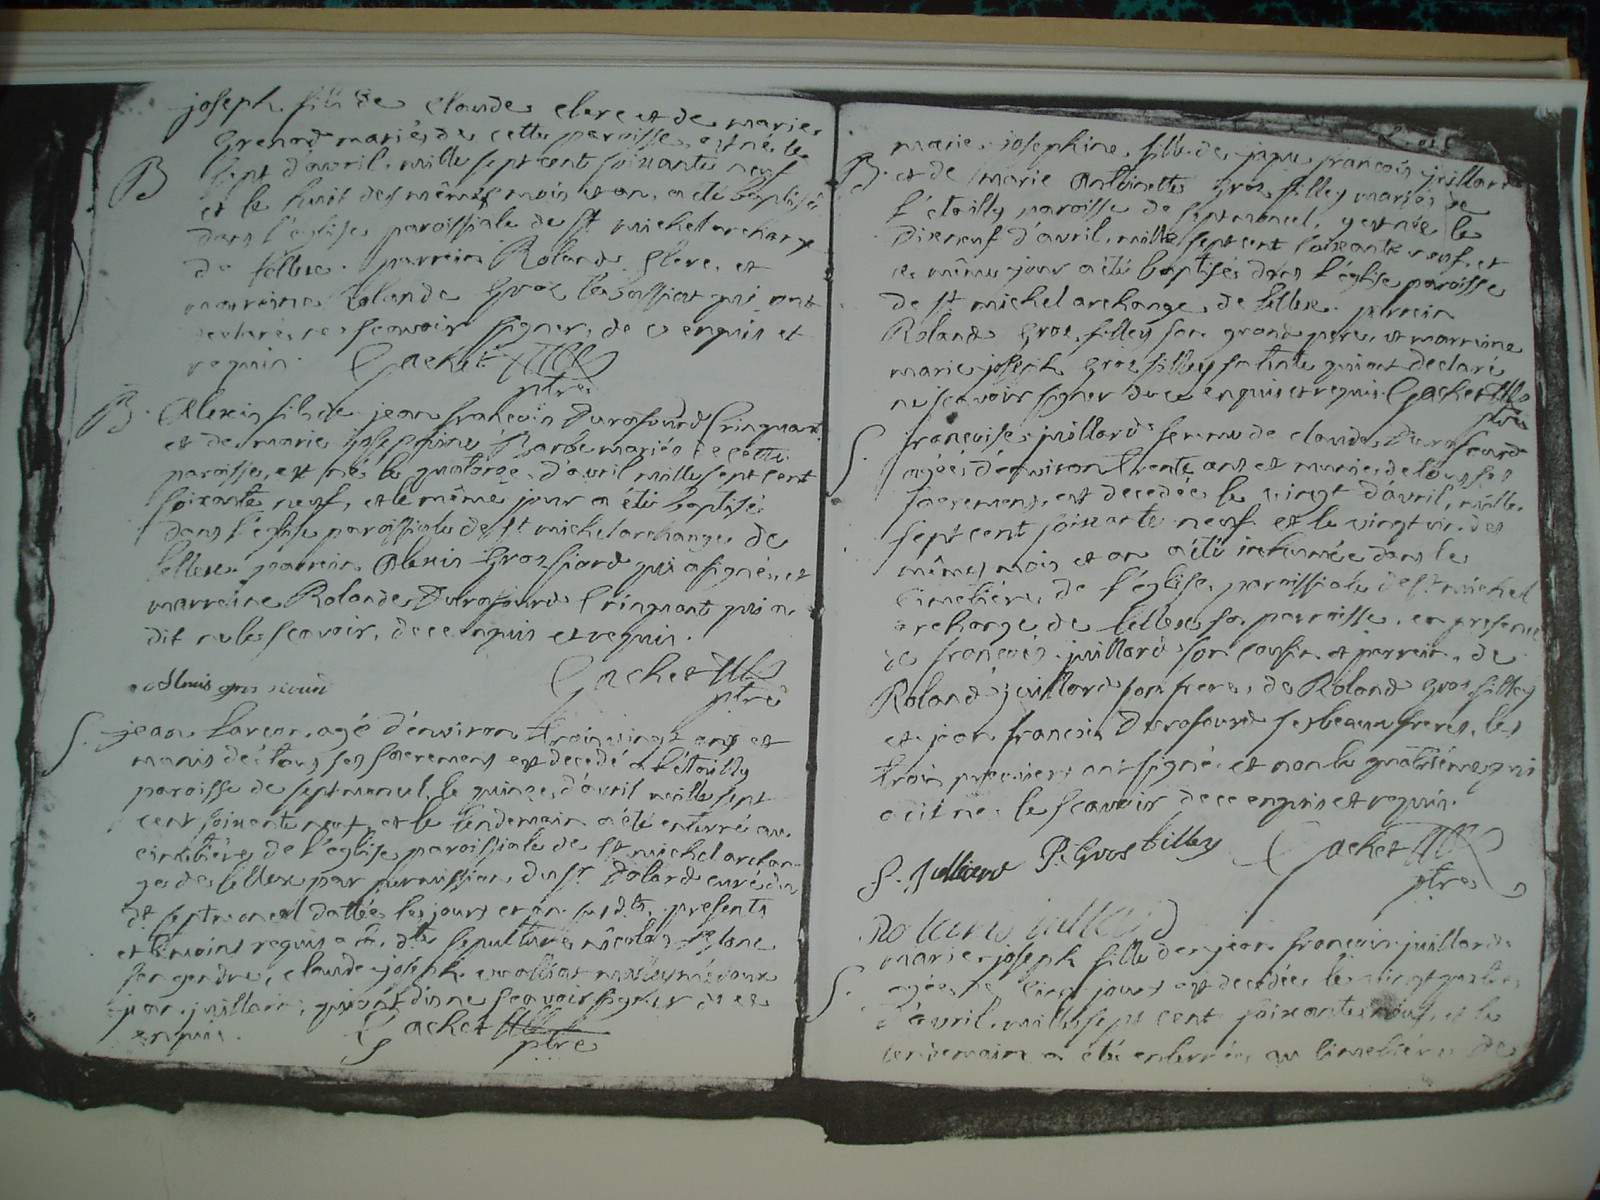 joseph fils de Claude Clerc et de marie
Grenod mariés de cette paroisse, est né le
B
sept d'avril mille sept cent soixante neuf
et le huit des mêmes mois et an, a été baptisé
dans l'église paroissiale de St michel archange
de lellex. parrein Roland Clerc, et
marreine Rolande Gros qui ont
declaré ne scavoir signer, de ce enquis et
requis. Gachet
ptre
B. Alexis fils de jean françois Durafourd Cringnant
et de marie josephine Barbe mariés de cette
paroisse, est né le quatorze d'avril mille sept cent
soixante neuf, et le même jour a été baptisé
dans l'église paroissiale de St michel archange de
lellex. parrein Alexis Grospiard qui a signé, et
marreine Rolande Durafourd Cringnant qui a
dit ne le scavoir, de ce enquis et requis.
Gachet
ptre
Alexis gros
S. jean Lançon agé d'environ trois vingt ans et
munis de tous ses sacremens est decedé a l'étoilly
paroisse de septmoncel, le quinze d'avril mille sept
cent soixante neuf, et le lendemain a été enterré au
cimetière de l'église paroissiale de St michel archan-
ge de lellex par permission du Sr. Dalard curé du
dt septmoncel dattée les jours et an susdts, presents
et témoins requis a la dte sepulture nicolas Blanc
son gendre, claude joseph
jean juillard, qui ont dit ne scavoir signer de ce
enquis. Gachet
ptre
marie josephine fille de françois juillard
B. et de marie Antoinette Gros filley mariés de
l'étoilly paroisse de septmoncel, y est née le
dixneuf d'avril mille sept cent soixante neuf, et
le même jour a été baptisée dans l'église paroisse
de St michel archange de lellex. parrein
Roland Gros filley son grand pere, et marreine
marie joseph Gros filley sa tante qui ont declaré
ne scavoir signer de ce enquis et requis Gachet
ptre
S. françoise juillard femme de claude Durafourd
agée d'environ trente ans et munie de tous ses
sacremens, est decedée le vingt d'avril, mille
sept cent soixante neuf et le vingt un des
mêmes mois et an a été inhumée dans le
cimetière de l'église paroissiale de St michel
archange de lellex sa paroisse, en presence
de françois juillard son cousin et parrein, de
Roland juillard son frere, de Roland Gros filley
et jean françois Durafourd ses beaux freres, les
trois premiers ont signé et non le quatrième qui
a dit ne le scavoir de ce enquis et requis.
P. Gros filley Gachet
ptre
marie joseph fille de jean françois juillard
S. agée de cinq jours est decedée le vingt quatre
d'avril mille sept cent soixante neuf, et le
lendemain a été enterrée au cimetière de